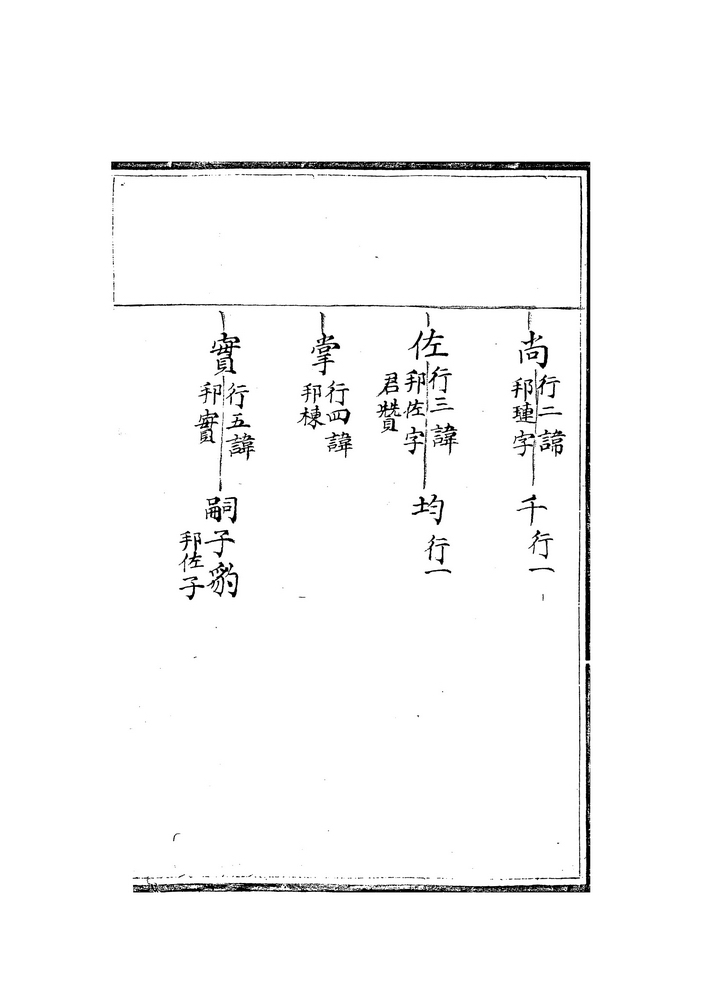 尚
行二諱
邦璉字
千
行一
佐
行三諱
邦佐字
君贊
均
行一
掌
行四諱
邦棟
實
行五諱
邦實
嗣子豹
邦佐子